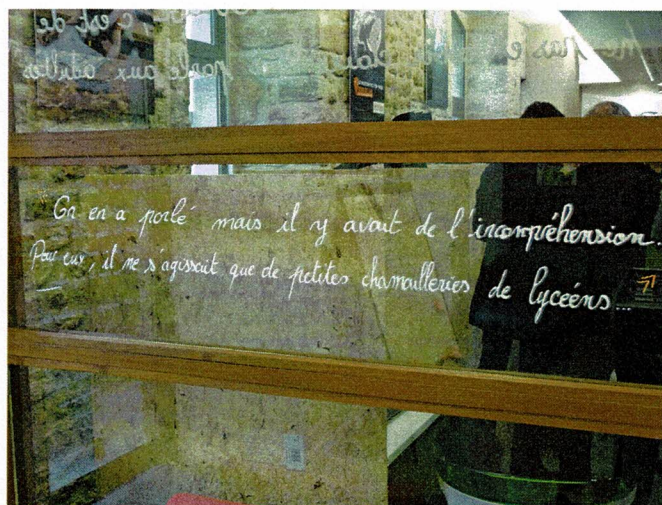 c'est de
me pas e
parle aux adultes
"On en a parlé mais il y avait de l'incompréhension.
Pour eux, il ne s'agissait que de petites chamailleries de lycéens...